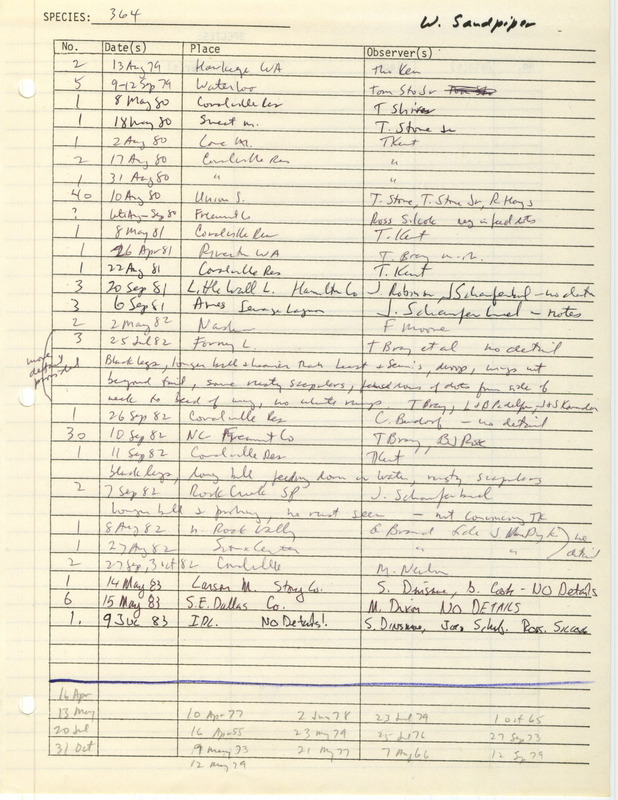 SPECIES: 364
W. Sandpiper
No. Date(s) Place Observer(s)
2 13 Aug 79 WA Ken
5 9-12 Sep 79 Waterloo Tom Sto Jr
1 8 May 80 Coralville Res T
1 18 May 80 Sweet m. T. Stone Jr
1 2 Aug 80 Cone M. TKent
2 17 Aug 80 Coralville Res "
1 31 Aug 80 " "
40 10 Aug 80 Union S. T. Stone, T. Stone Jr, R Hays
? Sep 80 Fremont Co Ross Silcock
1 8 May 81 Coralville Res T. Kent
1 26 Apr 81 WA T. Bray
1 22 Aug 81 Coralville Res T. Kent
3 20 Sep 81 Little Wall L. Hamilton Co J. Robinson, J Schaufenbuel - no details
3 6 Sep 81 Ames Sewage Lagoon J. Schaufenbuel - notes
2 2 May 82 F Moore
3 25 Jul 82 Forney L. T Bray et al no detail
more details provided
Black legs, longer bill & heavier than Least & Semis, droop, wings not
beyond tail, some rusty scapulars, rows of dots from side of
neck to bend of wing, no white rump. T Bray,
1 26 Sep 82 Coralville Res C. Bendorf - no detail
30 10 Sep 82 NC Fremont Co T Bray, BJ Rose
1 11 Sep 82 Coralville Res TKent
black legs, long bill feeding down in water, rusty scapulars
2 7 Sep 82 Rock Creek SP J. Schaufenbuel
longer bill & probing, no rust seen - not convincing TK
1 8 Aug 82 n. Rock Valley
1 27 Aug 82 Sioux Center " " no detail
2 27 Sep, 3 Oct 82 Coralville M. Newlon
1 14 May 83 Larson M. Story Co. S. Dinsmore, D. Cook - NO Details
6 15 May 83 S.E. Dallas Co. M. Dixon NO DETAILS
1. 9 Jul 83 IDC. No Details! S. Dinsmore, Ross. Silcock
16 Apr
13 May 10 Apr 77 2 Jun 78 23 Jul 79 1 Oct 65
20 Jul 16 Apr 55 23 May 79 25 Jul 76 27 Sep 73
31 Oct 19 May 73 21 May 77 7 Aug 66 12 Sep 79
12 May 79